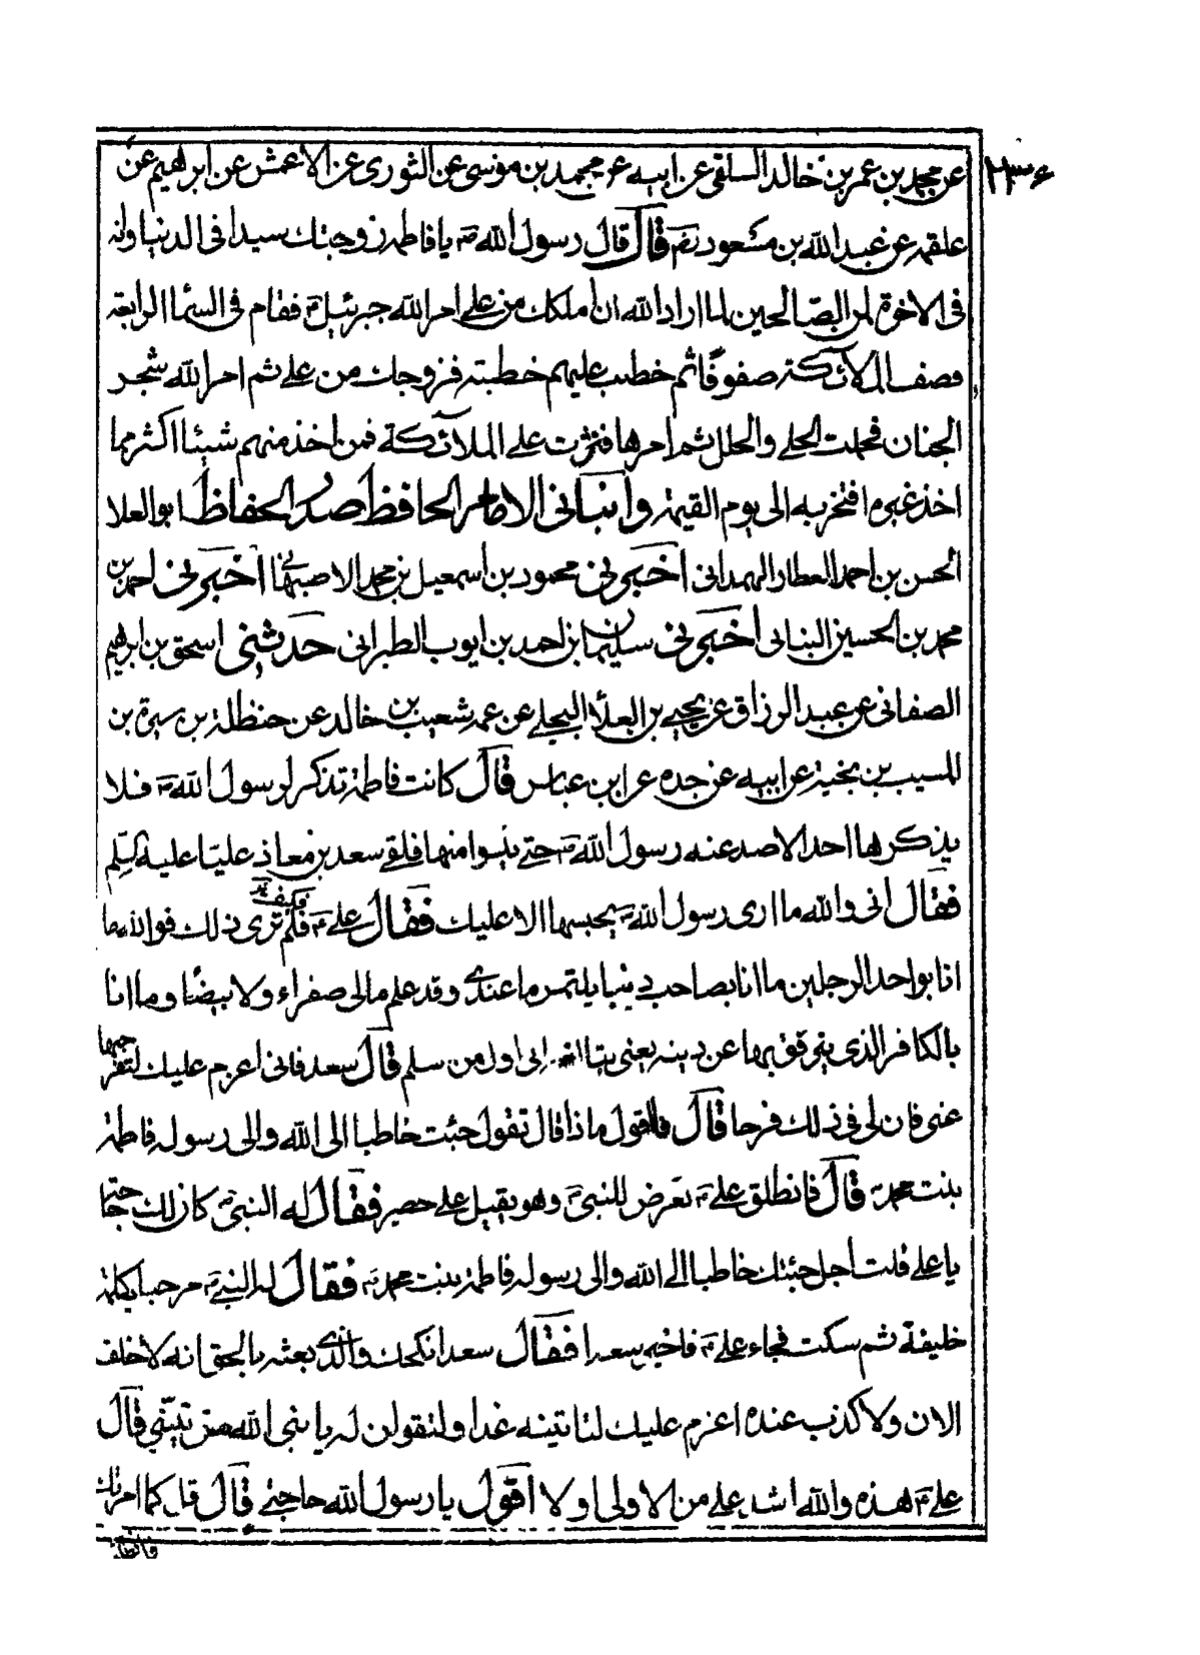 ٢٣٤
عن محمد بن عمر بن خالد السلفى عن ابيه عن محمد بن موسى عن الثورى عن الاعمش عن ابراهيم عن
علقمه عن عبد الله بن مسعود رض قال قال رسول الله ص يا فاطمة زوجتك سيدا فى الدنيا وانه
فى الاخرة لمن الصالحين لما اراد الله ان املكك من على امر الله جبرئيل ع فقام فى السما الرابعة
فصف الملائكة صفوفا ثم خطب عليهم خطبته فزوجك من على ثم امر الله شجر
الجنان فحملت الحلى والحلل ثم امرها فنثرت على الملائكة فمن اخذ منهم شيئا اكثر مما
اخذ غيره افتخر به الى يوم القيمة وانبانى الامام الحافظ صدر الحفاظ ابو العلا
الحسن بن احمد العطار الهمدانى اخبرنى محمود بن اسمعيل بن محمد الاصبهانى انا اخبرنى احمد بن
محمد بن الحسين البنانى اخبرنى سليمان بن احمد بن ايوب الطبرانى حدثنى اسحق بن ابرهيم
الصفانى عن عبد الرزاق عن يحيى بن العلا البجلى عن عمه شعيب بن خالد عن حنظلة بن سبرة بن
المسيب بن نجية عن ابيه عن جده عن ابن عباس قال كانت فاطمة تذكر لرسول الله ص فلا
يذكرها احد الا صد عنه رسول الله ص حتى يئسوا منها فلقى سعد بن معاذ عليا عليه السلم
فقال انى والله ما ارى رسول الله ص يحبسها الا عليك فقال على ع فلم ترى ذلك فوالله ما
انا بواحد الرجلين ما انا بصاحب دنيا يلتمس ما عندى وقد علم مالى صفراء ولا بيضا وما انا
بالكافر الذى يترفق بها عن دينه يعنى يتالفه انى اول من سلم قال سعد فانى اعزم عليك لتفرجنها
عنى فان لى فى ذلك فرحا قال فاقول ماذا قال تقول جئت خاطبا الى الله والى رسوله فاطمة
بنت محمد ص قال فانطلق على ع تعرض للنبى ص وهو يقيل على حصير فقال له النبى ص كان لك حاجة
يا على قلت اجل جئتك خاطبا الى الله والى رسوله فاطمة بنت محمد ص فقال له النبى ص مرحبا بكلمة
خليفة ثم سكت فجاء على ع فاخبر سعدا فقال سعد انكحك والذى بعثه بالحق انه لا خلف
الان ولا كذب عنده اعزم عليك لتاتينه غدا ولتقولن له يا نبى الله متى تبيننى قال
على ع هذه والله اشد على من الاولى اولا اقول يا رسول الله حاجتى قال قل كما امرتك
فانطلق